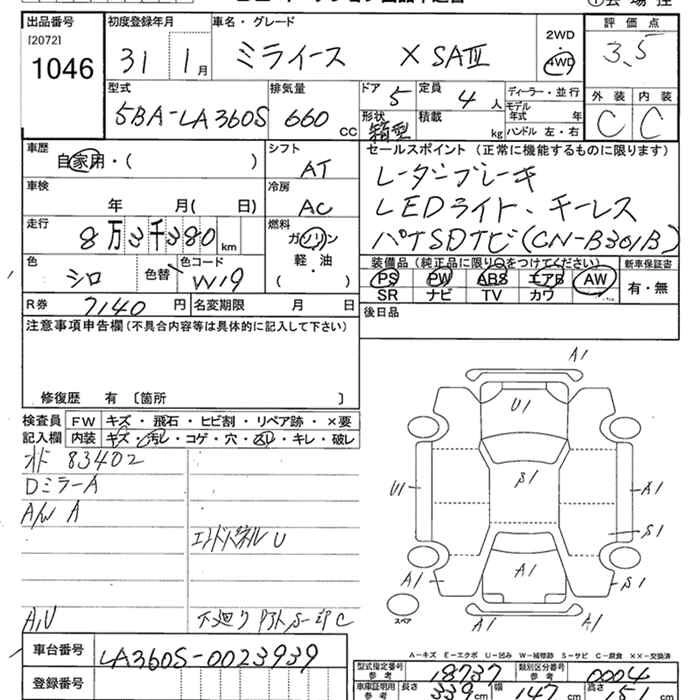 出品番号
[2072]
1046
初度登録年月
31 1月
車名・グレード
ミライース X SAⅢ
2WD
4WD
評価点
3.5
型式
5BA-LA360S
排気量
660 CC
ドア
5
定員
4人
形状
箱型
積載
kg
ディーラー・並行
モデル年式 年
ハンドル 左・右
外装 内装
C C
車歴
自家用・( )
シフト
AT
車検
年 月( 日)
冷房
AC
走行
8万3千380km
燃料
ガソリン
軽・油
( )
色
シロ
色替
色コード
W19
R券 7140円
名変期限 月 日
セールスポイント(正常に機能するものに限ります)
レーダーブレーキ
LEDライト・キーレス
パナSDナビ(CN-B301B)
装備品(純正品に限り○をつけてください)
PS PW ABS エアB AW
SR ナビ TV カワ
新車保証書
有・無
注意事項申告欄(不具合内容等は具体的に記入して下さい)
後日品
修復歴 有〔箇所 〕
検査員記入欄
FW キズ・飛石・ヒビ割・リペア跡・×要
内装 キズ・汚レ・コゲ・穴・スレ・キレ・破レ
オド 83402
DミラーA
A/W A
エンドパネルU
A,U
下廻りPアトS-印C
A1
U1
S1
U1
A1
S1
A1
A1
S1
A1
A1
スペア
A-キズ E-エクボ U-凹み W-補修跡 S-サビ C-腐食 XX-交換済
車台番号 LA360S-0023939
登録番号
型式指定番号 参考 18737
類別区分番号 参考 0004
車庫証明用 参考 長さ 339cm 幅 147cm 高さ 151cm